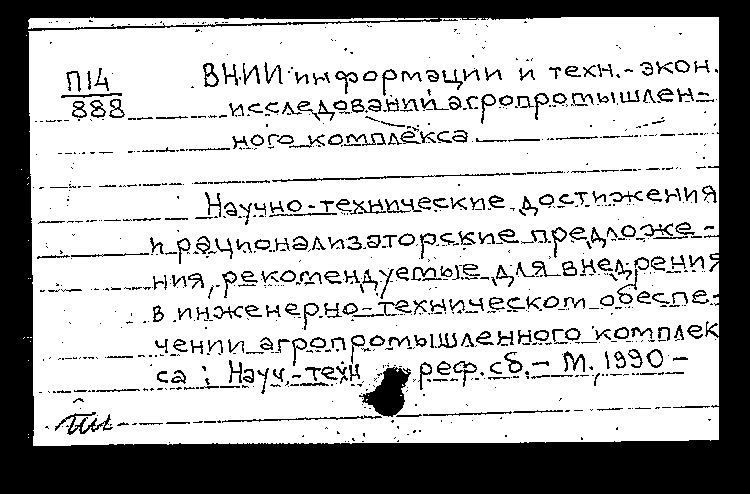 П14
888
ВНИИ информации и техн.-экон.
исследований агропромышлен-
ного комплекса.
Научно-технические достижения
и рационализаторские предложе-
ния, рекомендуемые для внедрения
в инженерно-техническом обеспе-
чении агропромышленного комплек
са : Науч.-техн реф. сб. - М., 1990 -